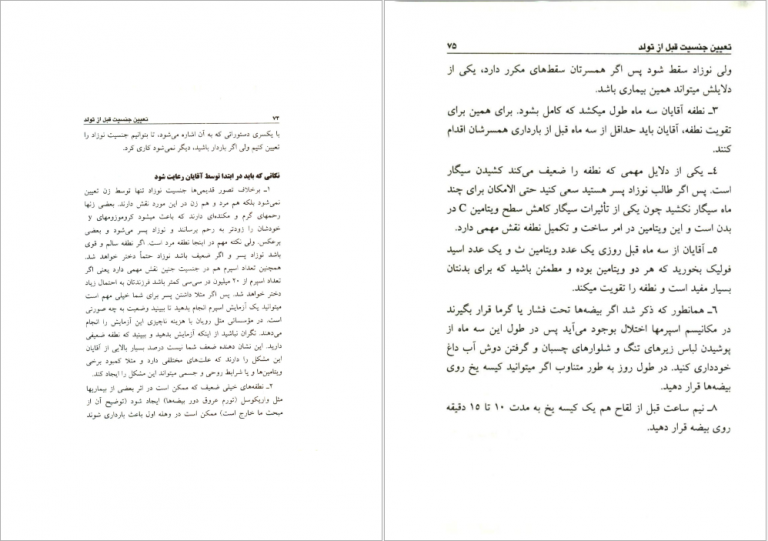 ۷۴ تعیین جنسیت قبل از تولد
با یکسری دستوراتی که به آن اشاره می‌شود، تا بتوانیم جنسیت نوزاد را
تعیین کنیم ولی اگر باردار باشید، دیگر نمی‌شود کاری کرد.
نکاتی که باید در ابتدا توسط آقایان رعایت شود
۱ـ برخلاف تصور قدیمی‌ها جنسیت نوزاد تنها توسط زن تعیین
نمی‌شود بلکه هم مرد و هم زن در این مورد نقش دارند. بعضی زنها
رحمهای گرم و مکنده‌ای دارند که باعث میشود کروموزومهای y
خودشان را زودتر به رحم برسانند و نوزاد پسر می‌شود و بعضی
برعکس. ولی نکته مهم در اینجا نطفه مرد است. اگر نطفه سالم و قوی
باشد نوزاد پسر و اگر ضعیف باشد نوزاد حتماً دختر خواهد شد.
همچنین تعداد اسپرم هم در جنسیت جنین نقش مهمی دارد یعنی اگر
تعداد اسپرم از ۲۰ میلیون در سی‌سی کمتر باشد فرزندتان به احتمال زیاد
دختر خواهد شد. پس اگر مثلا داشتن پسر برای شما خیلی مهم است
میتوانید یک آزمایش اسپرم انجام بدهید تا ببینید وضعیت به چه صورتی
است. در مؤسساتی مثل رویان با هزینه ناچیزی این آزمایش را انجام
می‌دهند. نگران نباشید از اینکه آزمایش بدهید و ببینید که نطفه ضعیفی
دارید. این نشان دهنده ضعف شما نیست درصد بسیار بالایی از آقایان
این مشکل را دارند که علت‌های مختلفی دارد و مثلا کمبود برخی
ویتامین‌ها و یا شرایط روحی و جسمی میتواند این مشکل را ایجاد کند.
۲ـ نطفه‌های خیلی ضعیف که ممکن است در اثر بعضی از بیماریها
مثل واریکوسل (تورم عروق دور بیضه‌ها) ایجاد شود (توضیح آن از
مبحث ما خارج است) ممکن است در وهله اول باعث بارداری شوند
تعیین جنسیت قبل از تولد ۷۵
ولی نوزاد سقط شود پس اگر همسرتان سقط‌های مکرر دارد، یکی از
دلایلش میتواند همین بیماری باشد.
۳ـ نطفه آقایان سه ماه طول میکشد که کامل بشود. برای همین برای
تقویت نطفه، آقایان باید حداقل از سه ماه قبل از بارداری همسرشان اقدام
کنند.
٤ـ یکی از دلایل مهمی که نطفه را ضعیف می‌کند کشیدن سیگار
است. پس اگر طالب نوزاد پسر هستید سعی کنید حتی الامکان برای چند
ماه سیگار نکشید چون یکی از تأثیرات سیگار کاهش سطح ویتامین C در
بدن است و این ویتامین در امر ساخت و تکمیل نطفه نقش مهمی دارد.
۵ـ آقایان از سه ماه قبل روزی یک عدد ویتامین ث و یک عدد اسید
فولیک بخورید که هر دو ویتامین بوده و مطمئن باشید که برای بدنتان
بسیار مفید است و نطفه را تقویت میکند.
۶ـ همانطور که ذکر شد اگر بیضه‌ها تحت فشار یا گرما قرار بگیرند
در مکانیسم اسپرمها اختلال بوجود می‌آید پس در طول این سه ماه از
پوشیدن لباس زیرهای تنگ و شلوارهای چسبان و گرفتن دوش آب داغ
خودداری کنید. در طول روز به طور متناوب اگر میتوانید کیسه یخ روی
بیضه‌ها قرار دهید.
۸ـ نیم ساعت قبل از لقاح هم یک کیسه یخ به مدت ۱۰ تا ۱۵ دقیقه
روی بیضه قرار دهید.